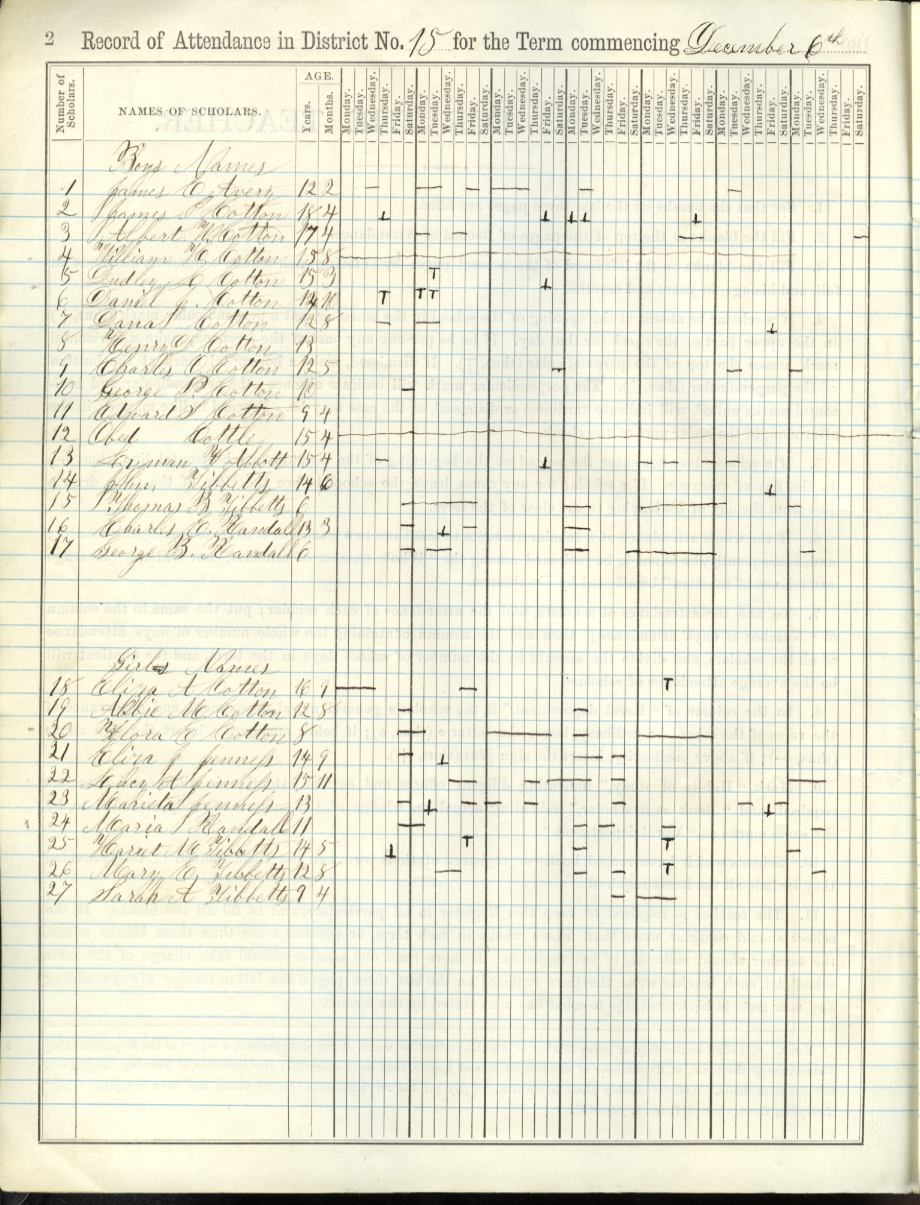 2 Record of Attendance in District No. 15 for the Term commencing December 6th
Number of Scholars. NAMES OF SCHOLARS. AGE. Years. Months. Monday. Tuesday. Wednesday. Thursday. Friday. Saturday. Monday. Tuesday. Wednesday. Thursday. Friday. Saturday. Monday. Tuesday. Wednesday. Thursday. Friday. Saturday. Monday. Tuesday. Wednesday. Thursday. Friday. Saturday. Monday. Tuesday. Wednesday. Thursday. Friday. Saturday. Monday. Tuesday. Wednesday. Thursday. Friday. Saturday. Monday. Tuesday. Wednesday. Thursday. Friday. Saturday.
Boys Names
1 James O. Avery 12 2
2 James Cotton 18 4
3 Albert W. Cotton 17 4
4 William H. Cotton 15 8
5 Dudley Cotton 15 3
6 Daniel Cotton
7 Dana Cotton 12 8
8 Henry Cotton 13
9 Charles Cotton 12 5
10 George P. Cotton 10
11 Edward S Cotton 9 4
12 Obed Cottle 15 4
13 Abbott 15 4
14 John Tibbetts 14 6
15 Thomas B Tibbetts 6
16 Charles Randall 13 3
17 George B. Randall 6
Girls Names
18 Eliza A Cotton 16 9
19 Abbie M. Cotton 12 8
20 Flora E Cotton 8
21 Eliza J Jenness 14 9
22 Lucy A Jenness 15 11
23 Marieta Jenness 13
24 Maria Randall 11
25 Harriet M. Tibbetts 14 5
26 Mary E. Tibbetts 12 8
27 Sarah A Tibbetts 9 4